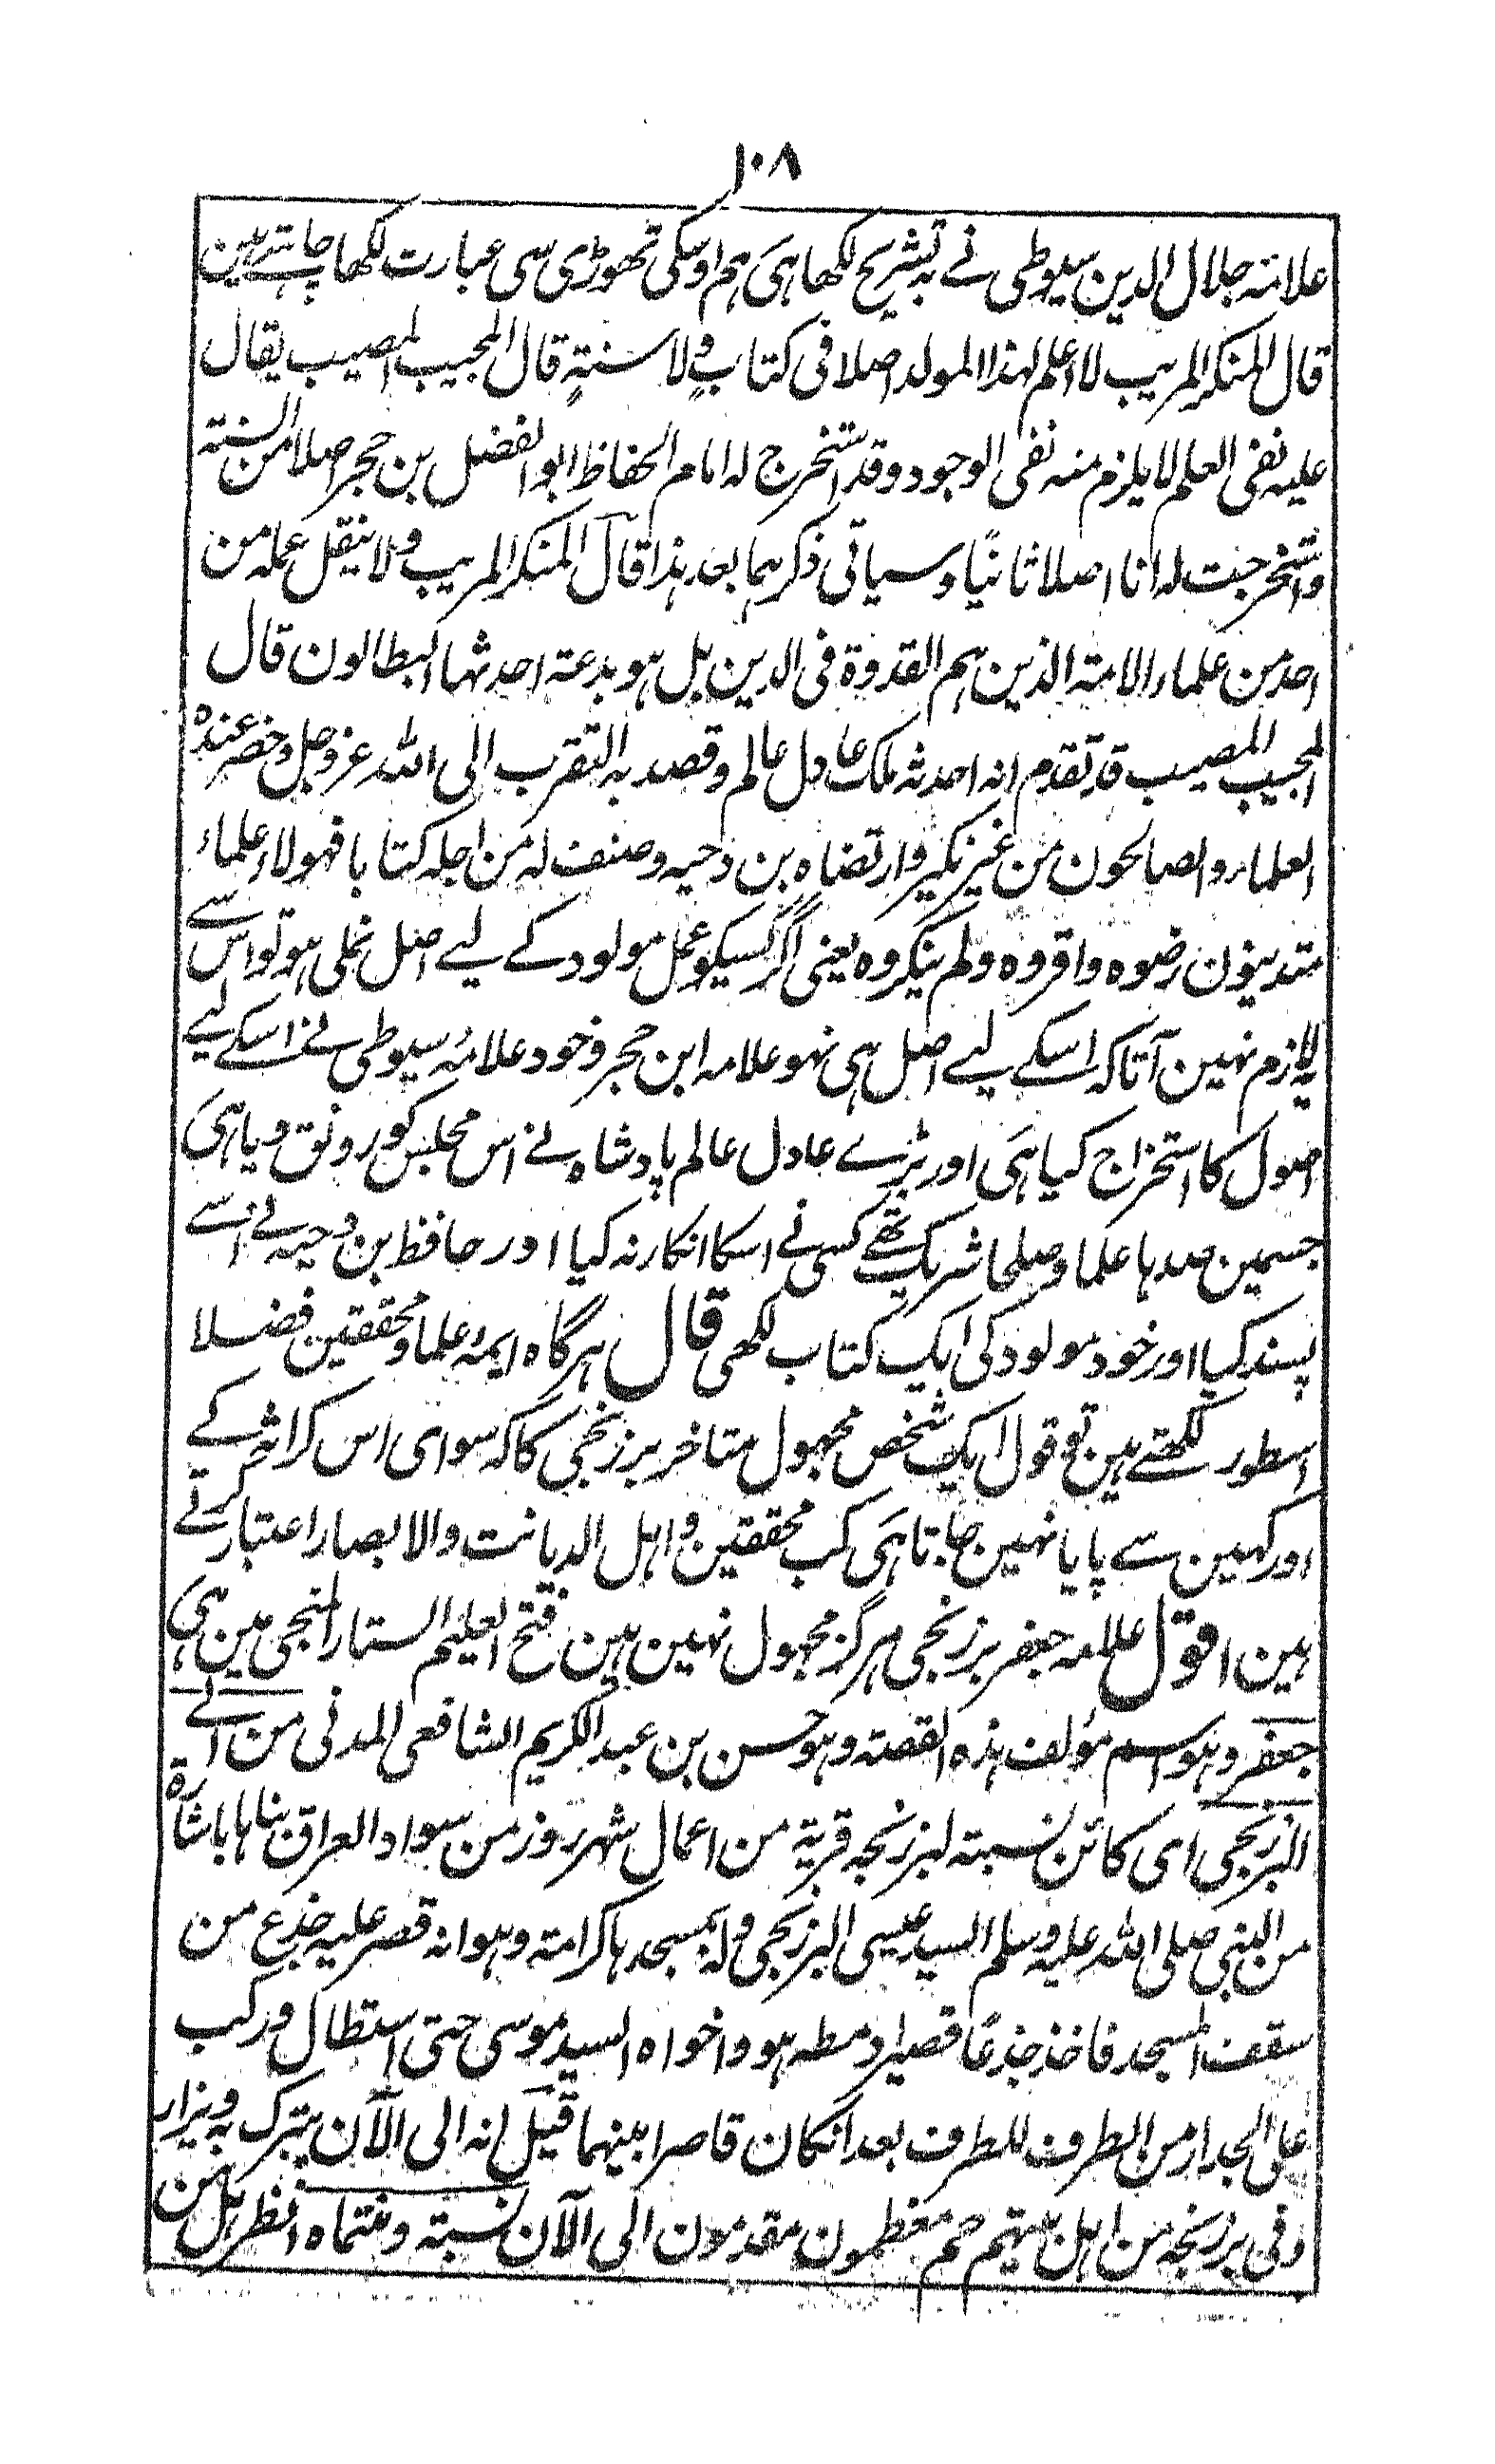 ۱۰۸
علامہ جلال الدین سیوطی نے بہ تشریح لکھا ہی ہم اوسکی تھوڑی سی عبارت لکھا چاہتے ہین
قال المنکر المریب لا اعلم لہذا المولد اصلا فی کتاب ولا سنۃ قال المجیب المصیب یقال
علیہ نفی العلم لا یلزم منہ نفی الوجود وقد استخرج لہ امام الحفاظ ابو الفضل بن حجر اصلا من السنتہ
واستخرجت لہ انا اصلا ثانیًا وسیاتی ذکرہما بعد ہذا قال المنکر المریب ولا ینقل عملہ من
احد من علماء الامتہ الذین ہم القدوۃ فی الدین بل ہو بدعتہ احدثہا البطالون قال
المجیب المصیب قد تقدم انہ احدثہ ملک عادل عالم وقصد بہ التقرب الی اللہ عز وجل وحضر عندہ
العلماء والصالحون من غیر نکیر وارتضاہ بن دحیہ وصنف لہ من اجلہ کتابا فہولاء علماء
متدینون رضوہ واقروہ ولم ینکروہ یعنی اگر کسیکو عمل مولود کے لیے اصل نملی ہو تو اس سے
یہ لازم نہین آتا کہ اسکے لیے اصل ہی نہو علامہ ابن حجر و خود علامۂ سیوطی نے اسکے لیے
اصول کا استخراج کیا ہی اور بڑے عادل عالم پادشاہ نے اس مجلس کو رونق دیا ہی
جسمین صدہا علما و صلحا شریک تھے کسی نے اسکا انکار نہ کیا اور حافظ بن دحیہ نے اسے
پسند کیا اور خود مولود کی ایک کتاب لکھی قال ہرگاہ ایمۂ علما و محققین فضلا
اسطور لکھتے ہین تو قول ایک شخص مجہول متاخر برزنجی کا کہ سوای اس کراثہ کے
اور کہین سے پایا نہین جاتا ہی کب محققین و اہل الدیانت والابصار اعتبار کرتے
ہین اقول علامہ جعفر برزنجی ہرگز مجہول نہین ہین فتح العلیم الستار المنجی مین ہی
جعفر وہو اسم مؤلف ہذہ القصتہ وہو حسن بن عبد الکریم الشافعی المدنی من الے
البرزنجی ای کائن نسبتہ لبرزنجہ قریۃ من اعمال شہر روز من سواد العراق بناہا باشارۃ
من النبی صلی اللہ علیہ وسلم السید عیسی البرزنجی ولہ بمسجدہا کرامتہ وہو انہ قصر علیہ جذع من
سقف المسجد فاخذ جذعًا قصیرا ومطہ ہو واخواہ السید موسی حتی استطال ورکب
علی الجدار من الطرف للطرف بعد انکان قاصرا بینہما قیل انہ الی الآن یتبرک بہ ویزار
وفی برزنجہ من اہل بیتہم جم معظمون مقدمون الی الآن نسبتہ ومنتماہ انظر بل من